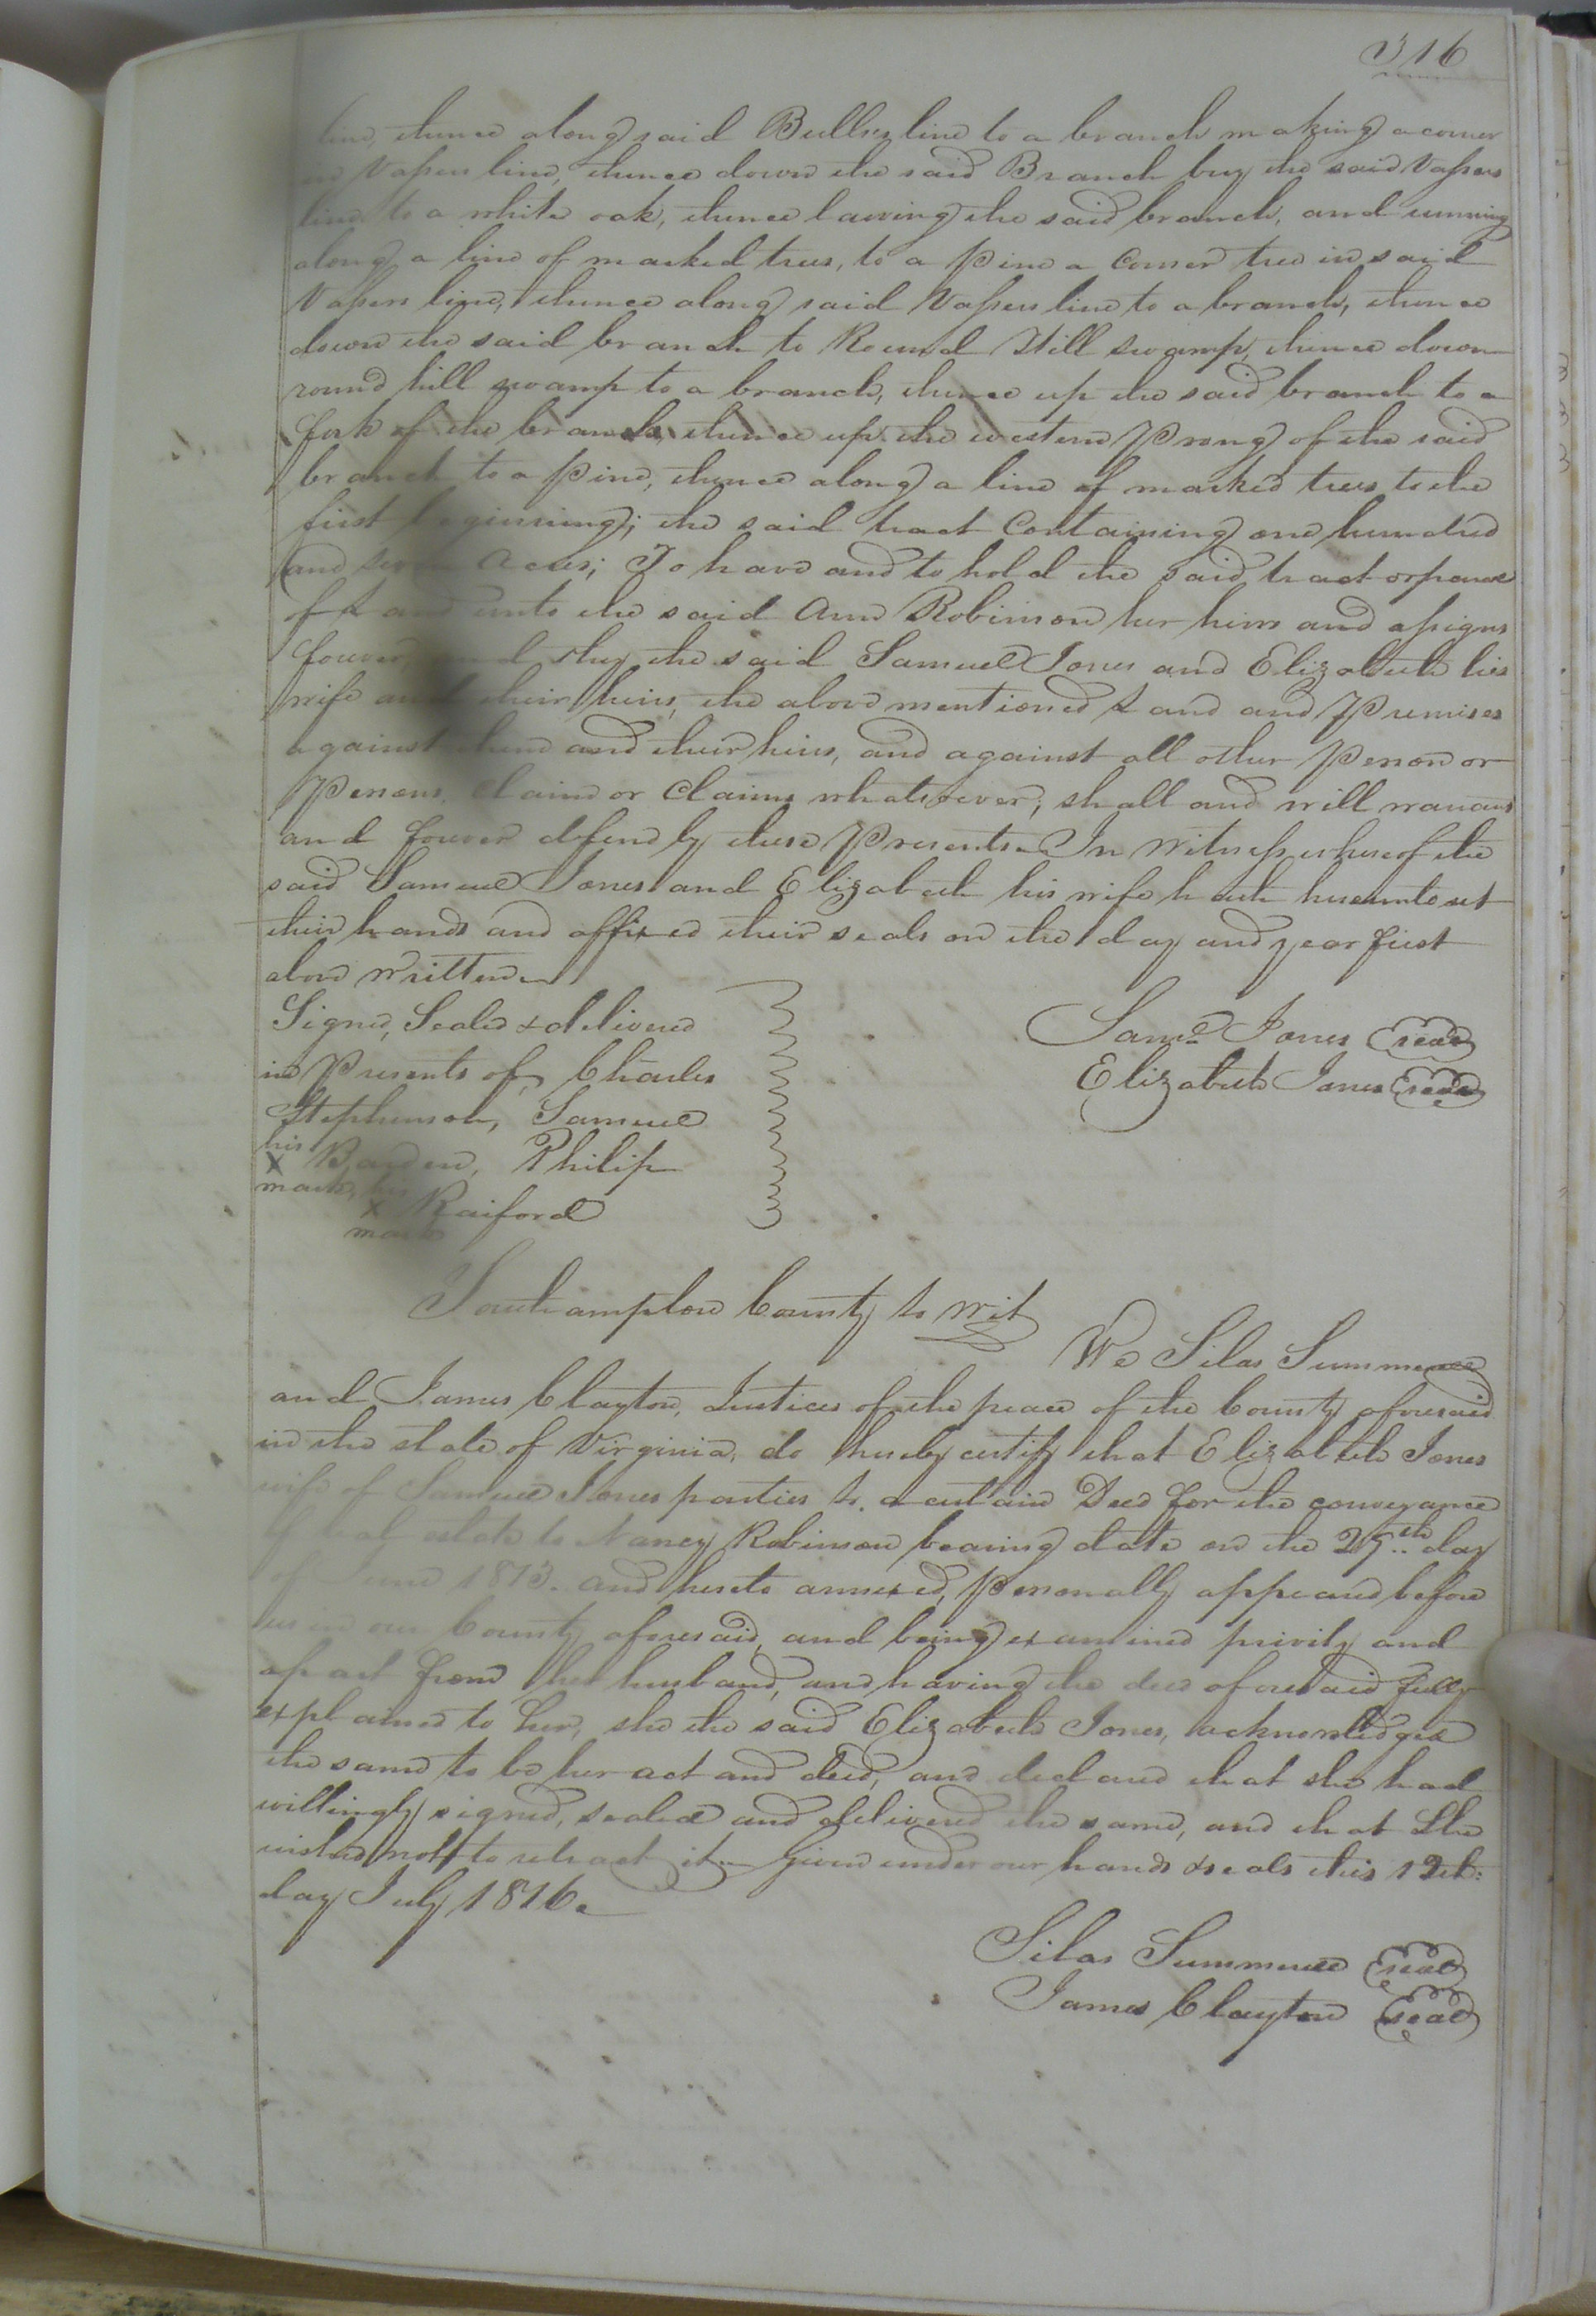 316
line, thence along said Bulls line to a branch making a corner
Vassers line, thence down the said Branch buy the said Vassers
line to a white oak, thence leaving the said branch, and running
along a line of marked trees, to a pine a Corner tree in said
Vassers line, thence along said Vassers line to a branch, thence
down the said branch to Round Hill swamp, thence down
round hill swamp to a branch, thence up the said branch to a
fork of the branch, thence up the western Prong of the said
branch to a pine, thence along a line of marked trees to the
first beginning; the said tract Containing one hundred
and Acres; To have and to hold the said tract or parcel
of Land unto the said Ann Robinson her heirs and assigns
forever, and they the said Samuel Jones and Elizabeth his
wife and their heirs, the above mentioned Land and Premises
against them and their heirs, and against all other Person or
Persons, claim or Claims whatsoever, shall and will warant
and forever defend by these Presents. In Witness whereof the
said Samuel Jones and Elizabeth his wife hath hereunto set
their hands and affixed their seals on the day and year first
above written
Signed, Sealed & delivered
in Presents of, Charles
Stephenson, Samuel
his
X Barden, Philip
mark, his
X Raiford
mark
Saml. Jones seal
Elizabeth Jones seal
Southampton County to wit
We Silas Summerell
and James Clayton, Justices of the peace of the County aforesaid
in the state of Virginia, do hereby certify that Elizabeth Jones
wife of Samuel Jones parties to a certain Deed for the conveyance
real estate to Nancy Robinson bearing date on the 25th day
of June 1813. and hereto annexed, Personally appeared before
us in our County aforesaid, and being examined privily and
apart from her husband, and having the deed aforesaid fully
explained to her, she the said Elizabeth Jones, acknowledged
the same to be her act and deed, and declared that she had
willingly signed, sealed and delivered the same, and that She
wished not to retract it. Given under our hands & seals this 12th:
day July 1816.
Silas Summerell seal
James Clayton seal